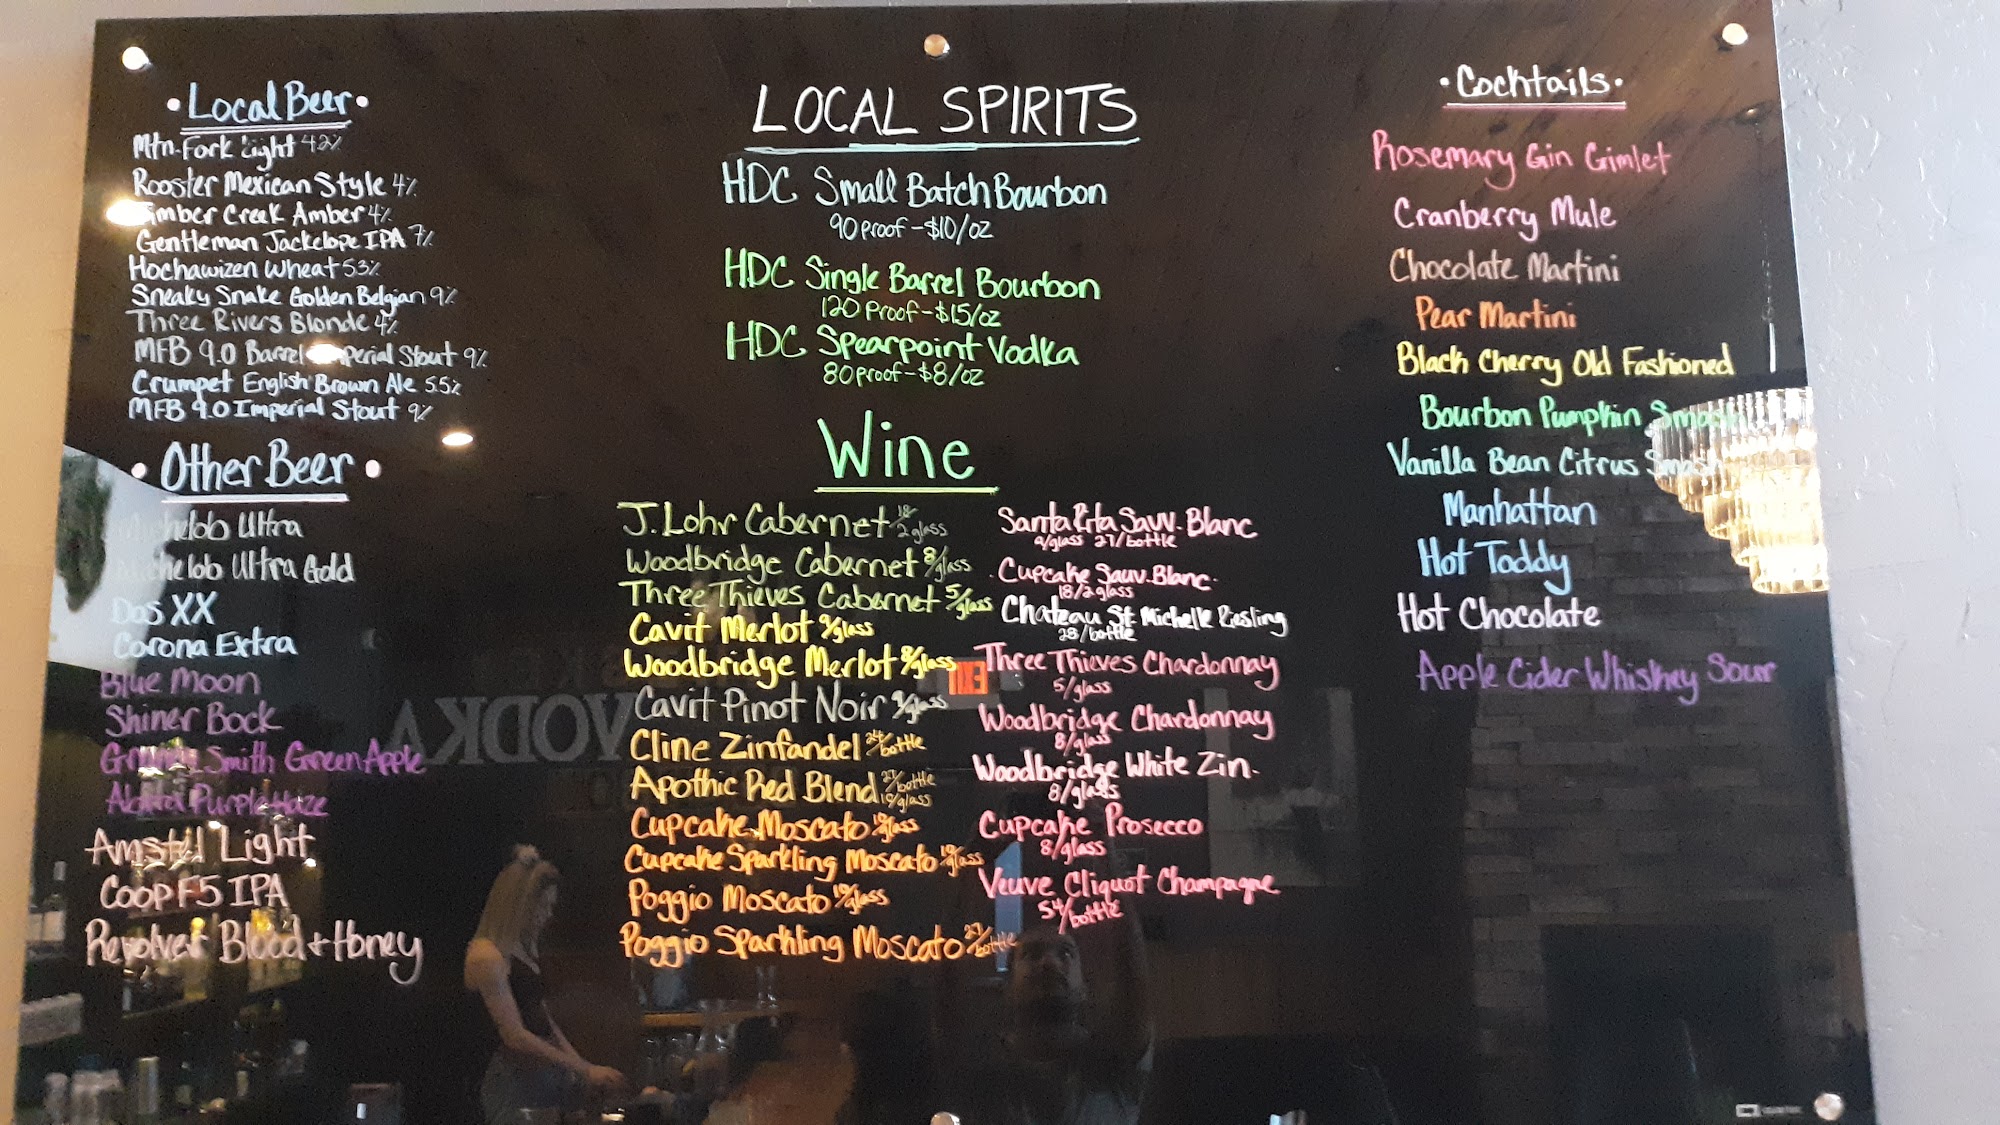 • Local Beer •
Mtn. Fork Light 4.2%
Rooster Mexican Style 4%
Timber Creek Amber 4%
Gentleman Jackelope IPA 7%
Hochawizen Wheat 5.3%
Sneaky Snake Golden Belgian 9%
Three Rivers Blonde 4%
MFB 9.0 Barrel Imperial Stout 9%
Crumpet English Brown Ale 5.5%
MFB 9.0 Imperial Stout 9%
• Other Beer •
Michelob Ultra
Michelob Ultra Gold
Dos XX
Corona Extra
Blue Moon
Shiner Bock
Granny Smith Green Apple
Abita Purple Haze
Amstel Light
Coop F5 IPA
Revolver Blood + Honey
LOCAL SPIRITS
HDC Small Batch Bourbon
90 proof - $10/oz
HDC Single Barrel Bourbon
120 Proof - $15/oz
HDC Spearpoint Vodka
80 proof - $8/oz
Wine
J. Lohr Cabernet 18/2 glass
Woodbridge Cabernet 8/glass
Three Thieves Cabernet 5/glass
Cavit Merlot 9/glass
Woodbridge Merlot 8/glass
Cavit Pinot Noir 9/glass
Cline Zinfandel 24/bottle
Apothic Red Blend 27/bottle
10/glass
Cupcake Moscato 10/glass
Cupcake Sparkling Moscato 10/glass
Poggio Moscato 10/glass
Poggio Sparkling Moscato 27/bottle
Santa Rita Sauv. Blanc
9/glass 27/bottle
Cupcake Sauv. Blanc.
18/2 glass
Chateau St Michelle Riesling
28/bottle
Three Thieves Chardonnay
5/glass
Woodbridge Chardonnay
8/glass
Woodbridge White Zin.
8/glass
Cupcake Prosecco
8/glass
Veuve Cliquot Champagne
54/bottle
EXIT
VODKA
• Cocktails •
Rosemary Gin Gimlet
Cranberry Mule
Chocolate Martini
Pear Martini
Black Cherry Old Fashioned
Bourbon Pumpkin Smash
Vanilla Bean Citrus Smash
Manhattan
Hot Toddy
Hot Chocolate
Apple Cider Whiskey Sour